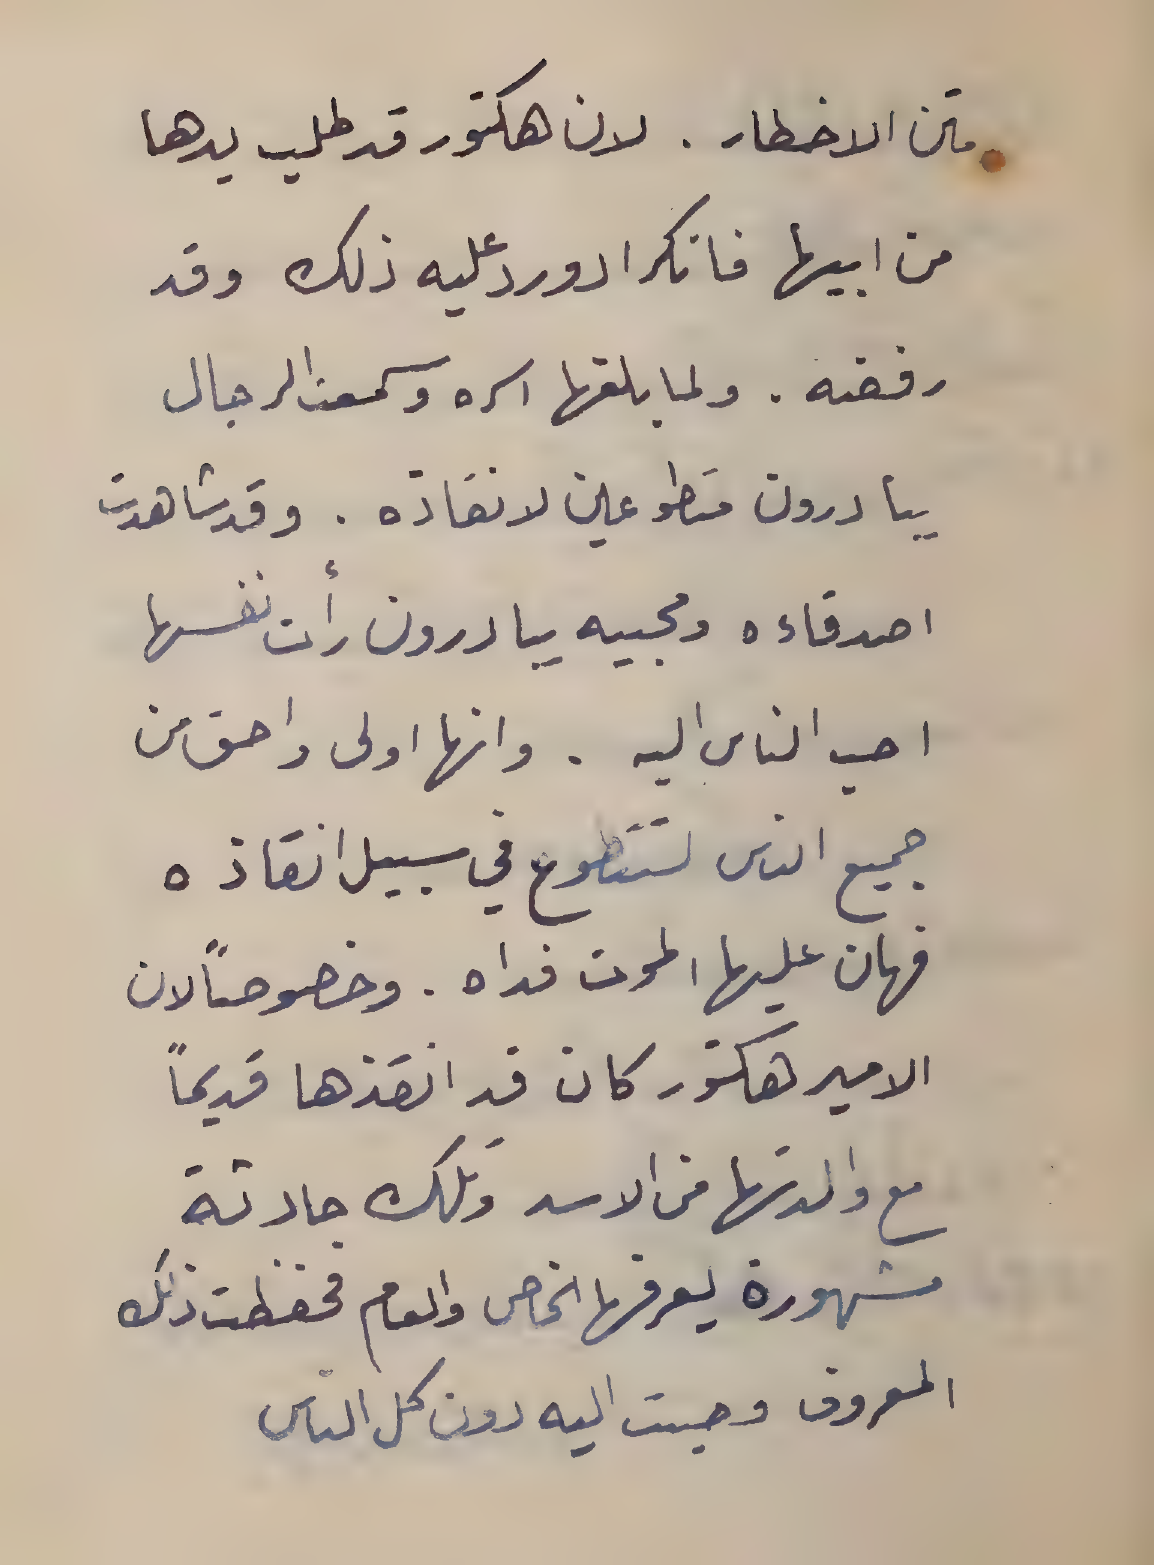 متن الاخطار . لان هكتور قد طلب يدها
من ابيها فانكر ادورد عليه ذلك وقد
رفضه . ولما بلغها اسره وسمعت الرجال
يبادرون متطوعين لانقاذه . وقد شاهدت
اصدقاءه ومحبيه يبادرون رأت نفسها
احب الناس اليه . وانها اولى واحق من
جميع الناس لتتطوع في سبيل انقاذه
فهان عليها الموت فداه . وخصوصاً لان
الامير هكتور كان قد انقذها قديماً
مع والدتها من الاسد وتلك حادثة
مشهورة يعرفها الخاص والعام فحفظت ذلك
المعروف وجئت اليه دون كل الناس